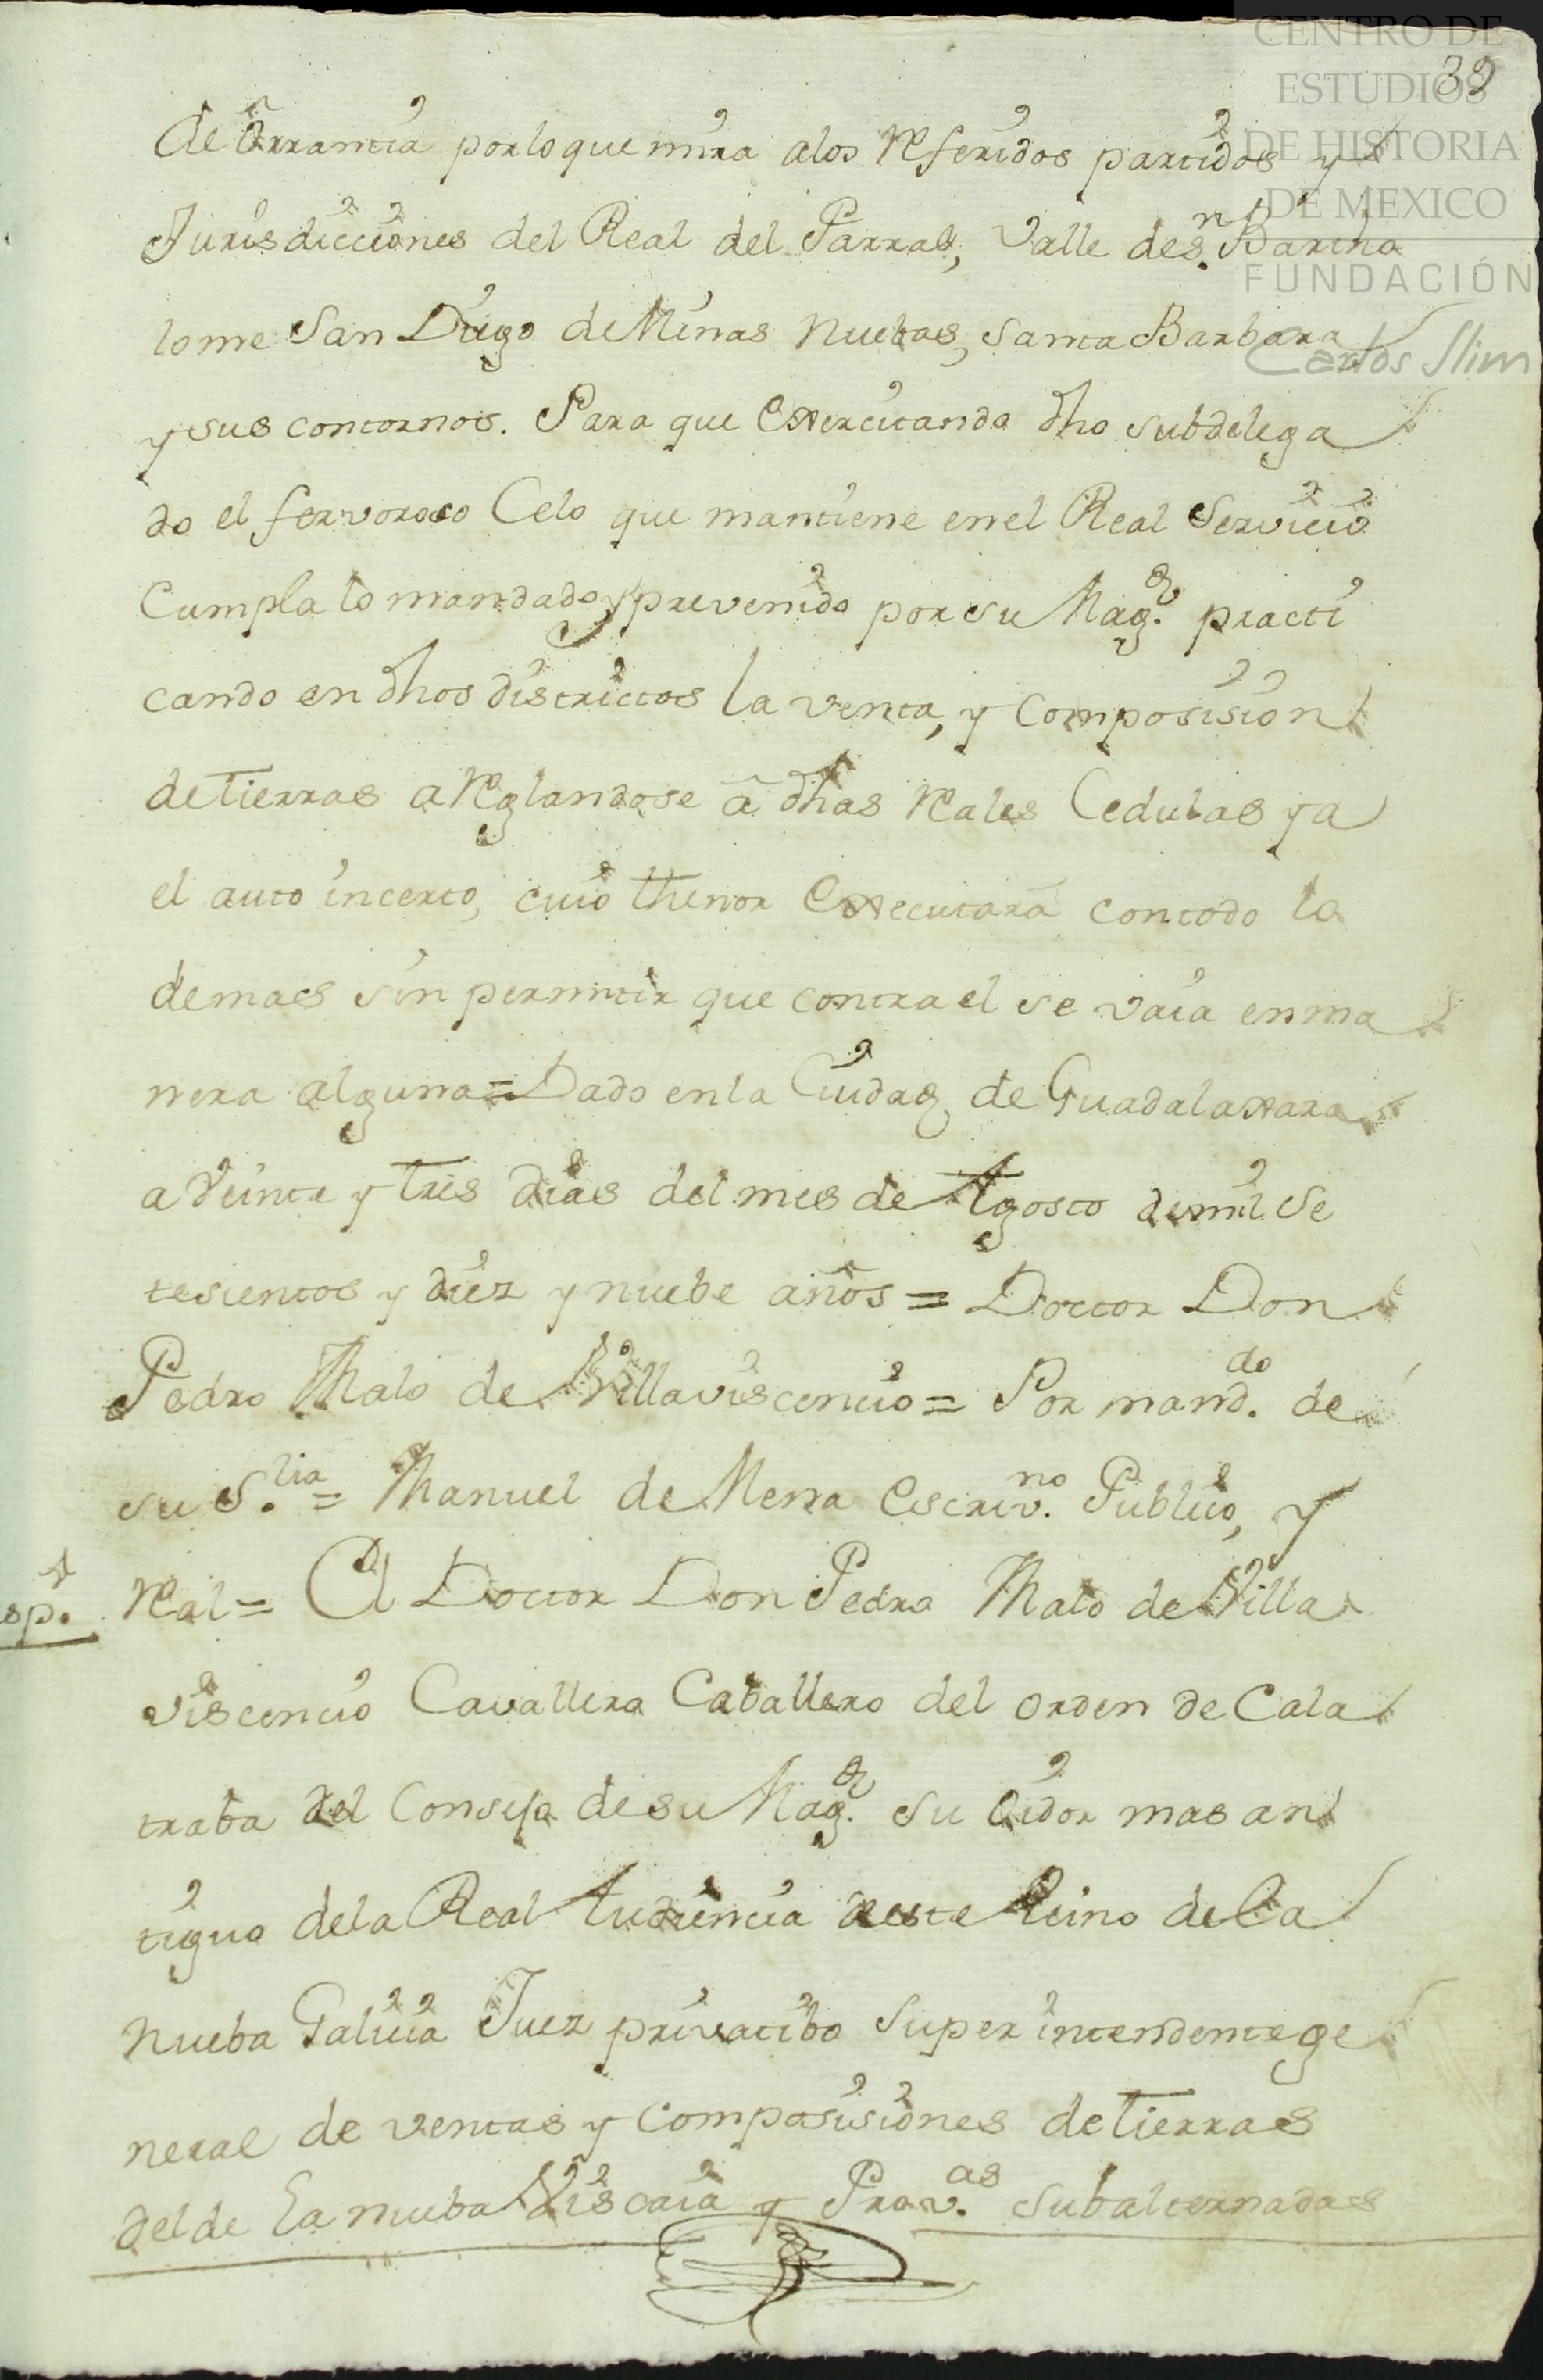 CENTRO DE
ESTUDIOS
DE HISTORIA
DE MEXICO
FUNDACIÓN
Carlos Slim
39
de Orrantia por lo que mira a los Referidos partidos y
Jurisdicciones del Real del Parral, Valle de Sn. Bartho
lome San Diego de Minas Nuebas, Santa Barbara
y sus contornos. Para que Exercitando dho subdelega
do el fervoroso Celo que mantiene en el Real Servicio
Cumpla lo mandado, y prevenido por su Magd. practi
cando en dhos districtos la venta, y Composision
de tierras aReglandose â dhas Reales Cedulas y a
el auto incerto, cuio thenor Executará con todo lo
demas sin permitir que contra el se vaia en ma
nera alguna = Dado en la Ciudad de Guadalaxara
a Veinte y tres dias del mes de Agosto de mil Se
tesientos y diez y nuebe años = Doctor Don
Pedro Malo de Villaviscencio = Por manddo. de
su S.lia = Manuel de Mena Escrivno. Publico, y
Real = El Doctor Don Pedro Malo de Villa
viscencio Cavallero Caballero del orden de Cala
traba del Consejo de su Magd. su Oidor mas an
tiguo de la Real Audiencia deste Reino de la
Nueba Galicia Juez privatibo Superintendente ge
neral de ventas y Composisiones de tierras
del de la nueba Viscaia y Provas. subalternadas